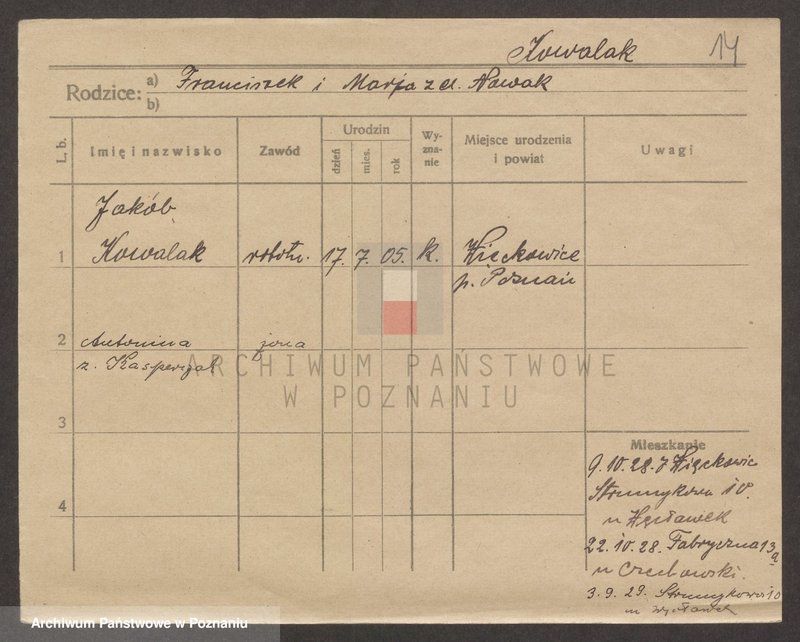 Kowalak 14
Rodzice: a) Franciszek i Marja z d. Nowak
b)
L. b. Imię i nazwisko Zawód Urodzin dzień mies. rok Wyzna-nie Miejsce urodzenia i powiat Uwagi
Jakób
1 Kowalak robotn. 17. 7. 05. k. Więckowice
p. Poznań
2 Antonina żona
z. Kasperzak
ARCHIWUM PAŃSTWOWE
W POZNANIU
3
Mieszkanie
9.10.28. z Więckowic
4 Strumykowa 10.
u
22.10.28. Fabryczna 13a
u Czechowski.
3.9.29. Strumykowa 10
u
Archiwum Państwowe w Poznaniu